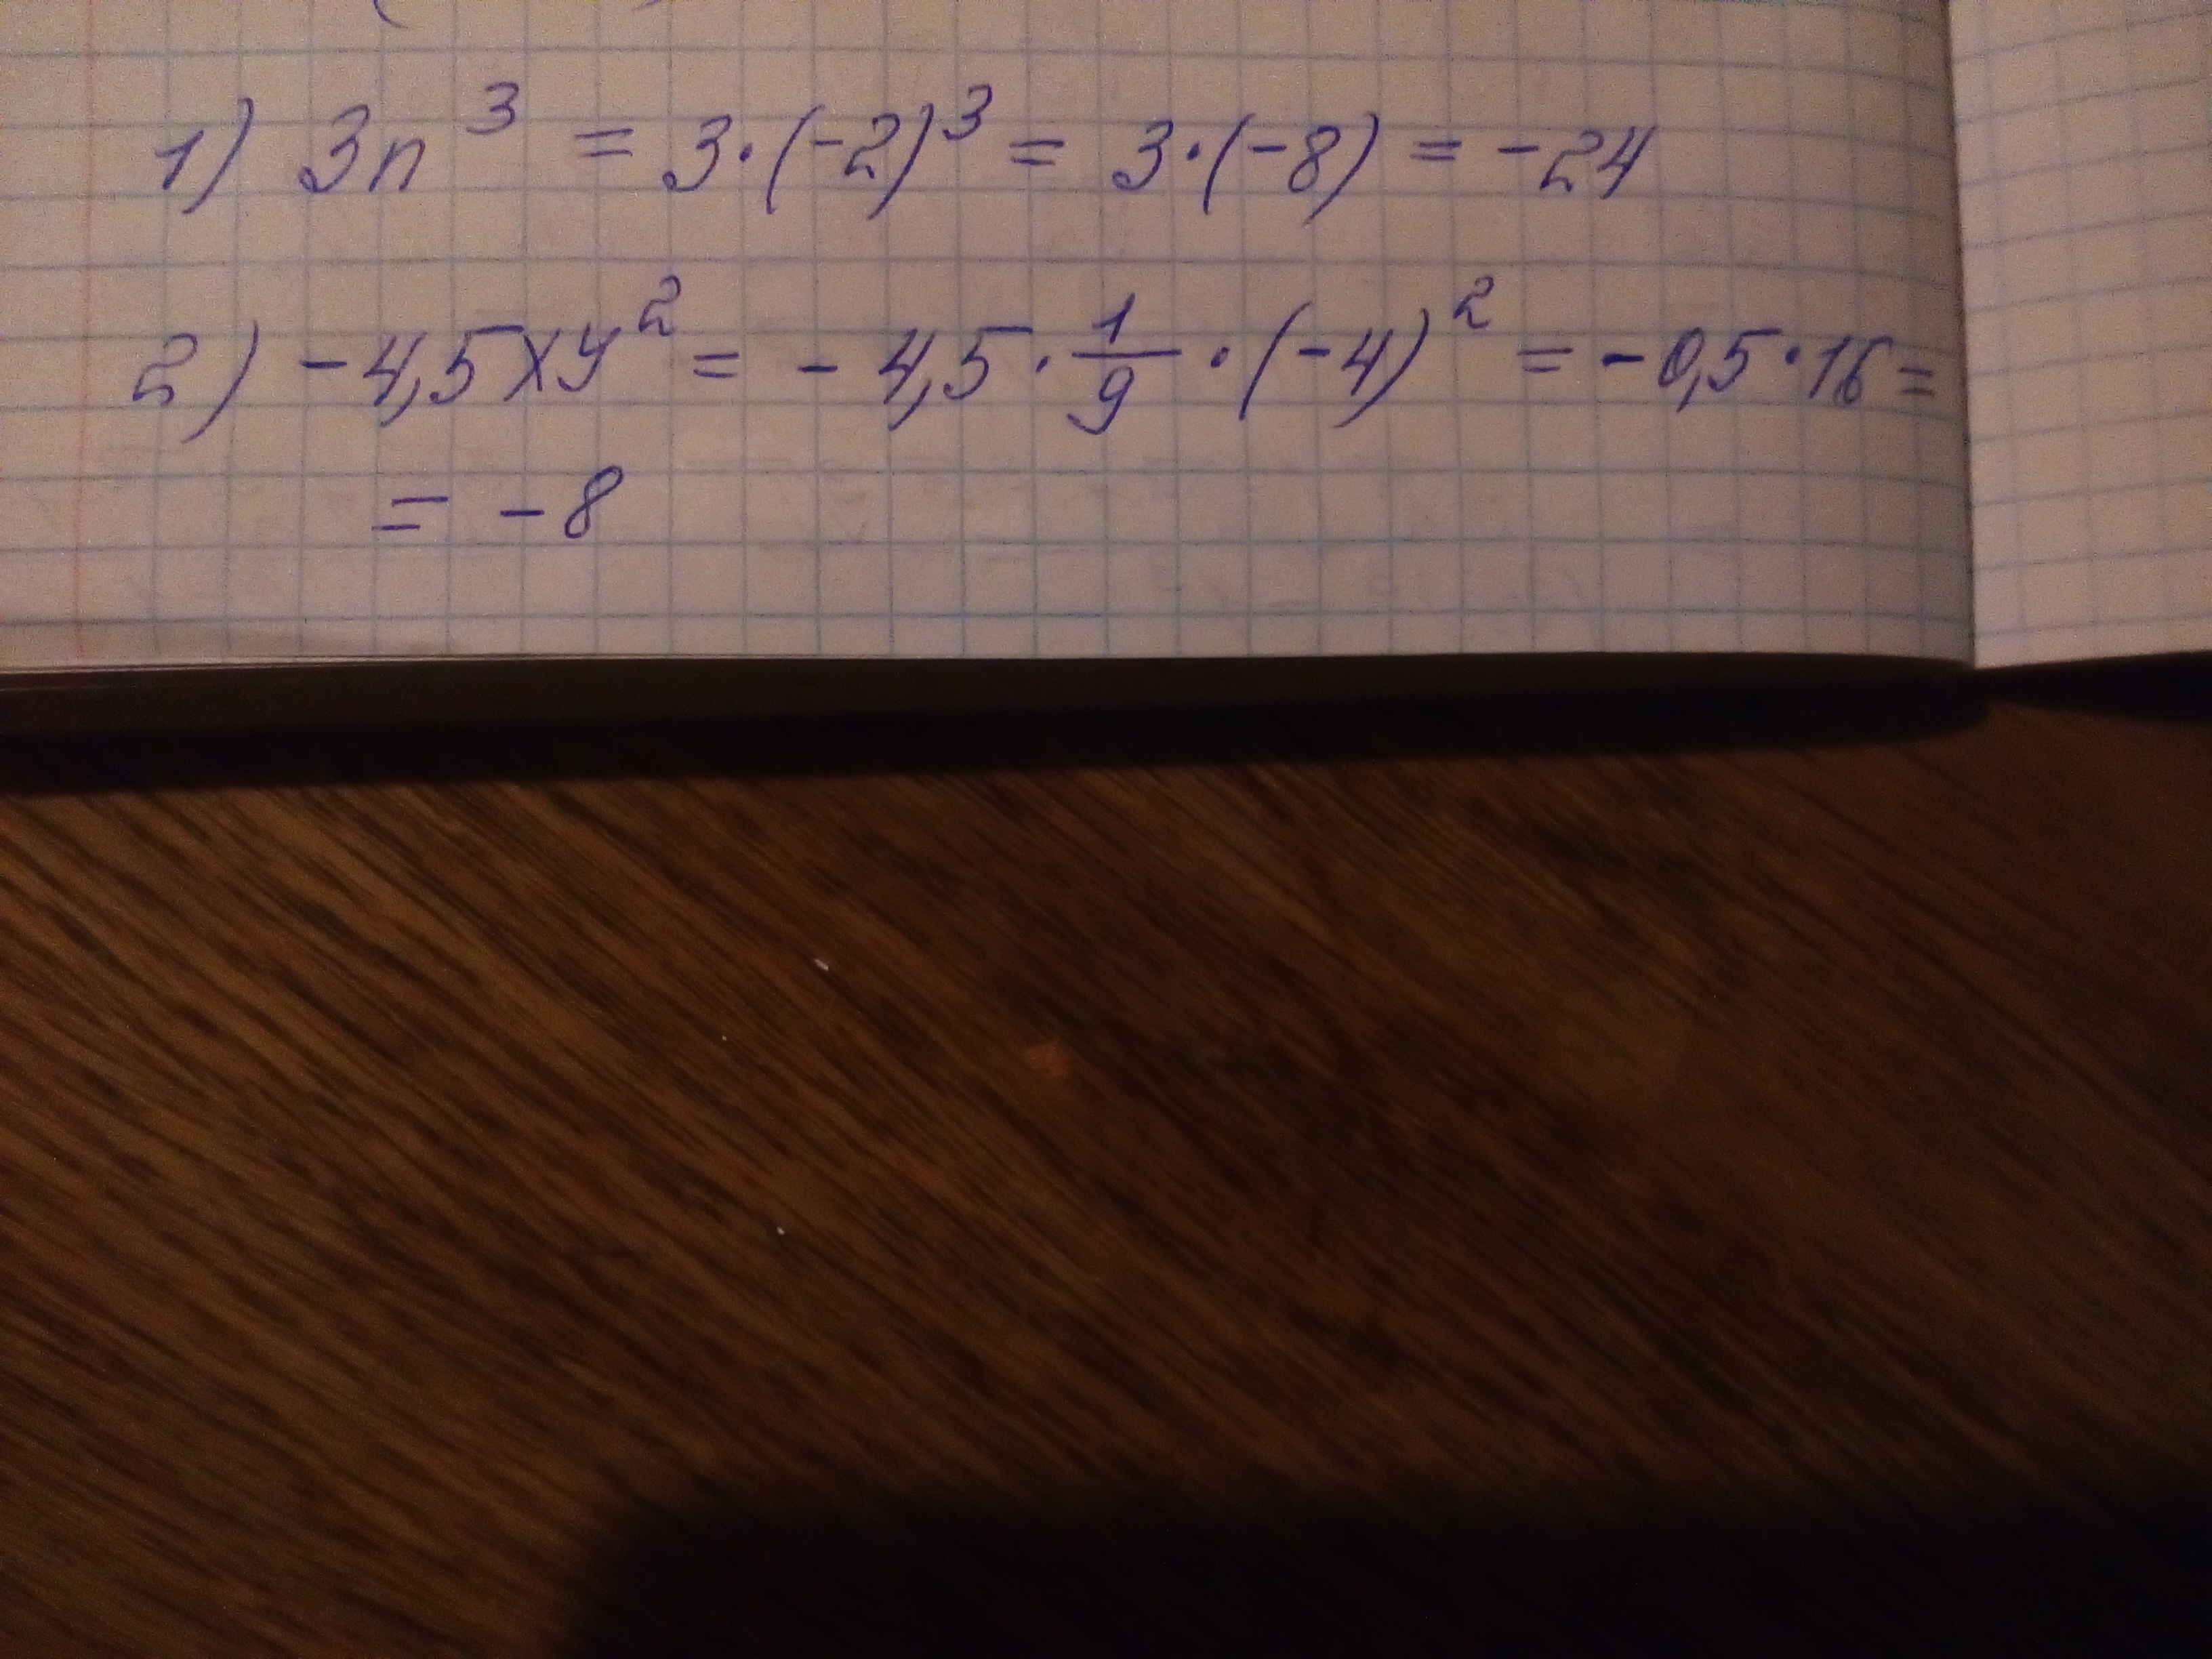 1) 3n³ = 3·(-2)³ = 3·(-8) = -24
2) -4,5xy² = -4,5·1/9·(-4)² = -0,5·16=
= -8